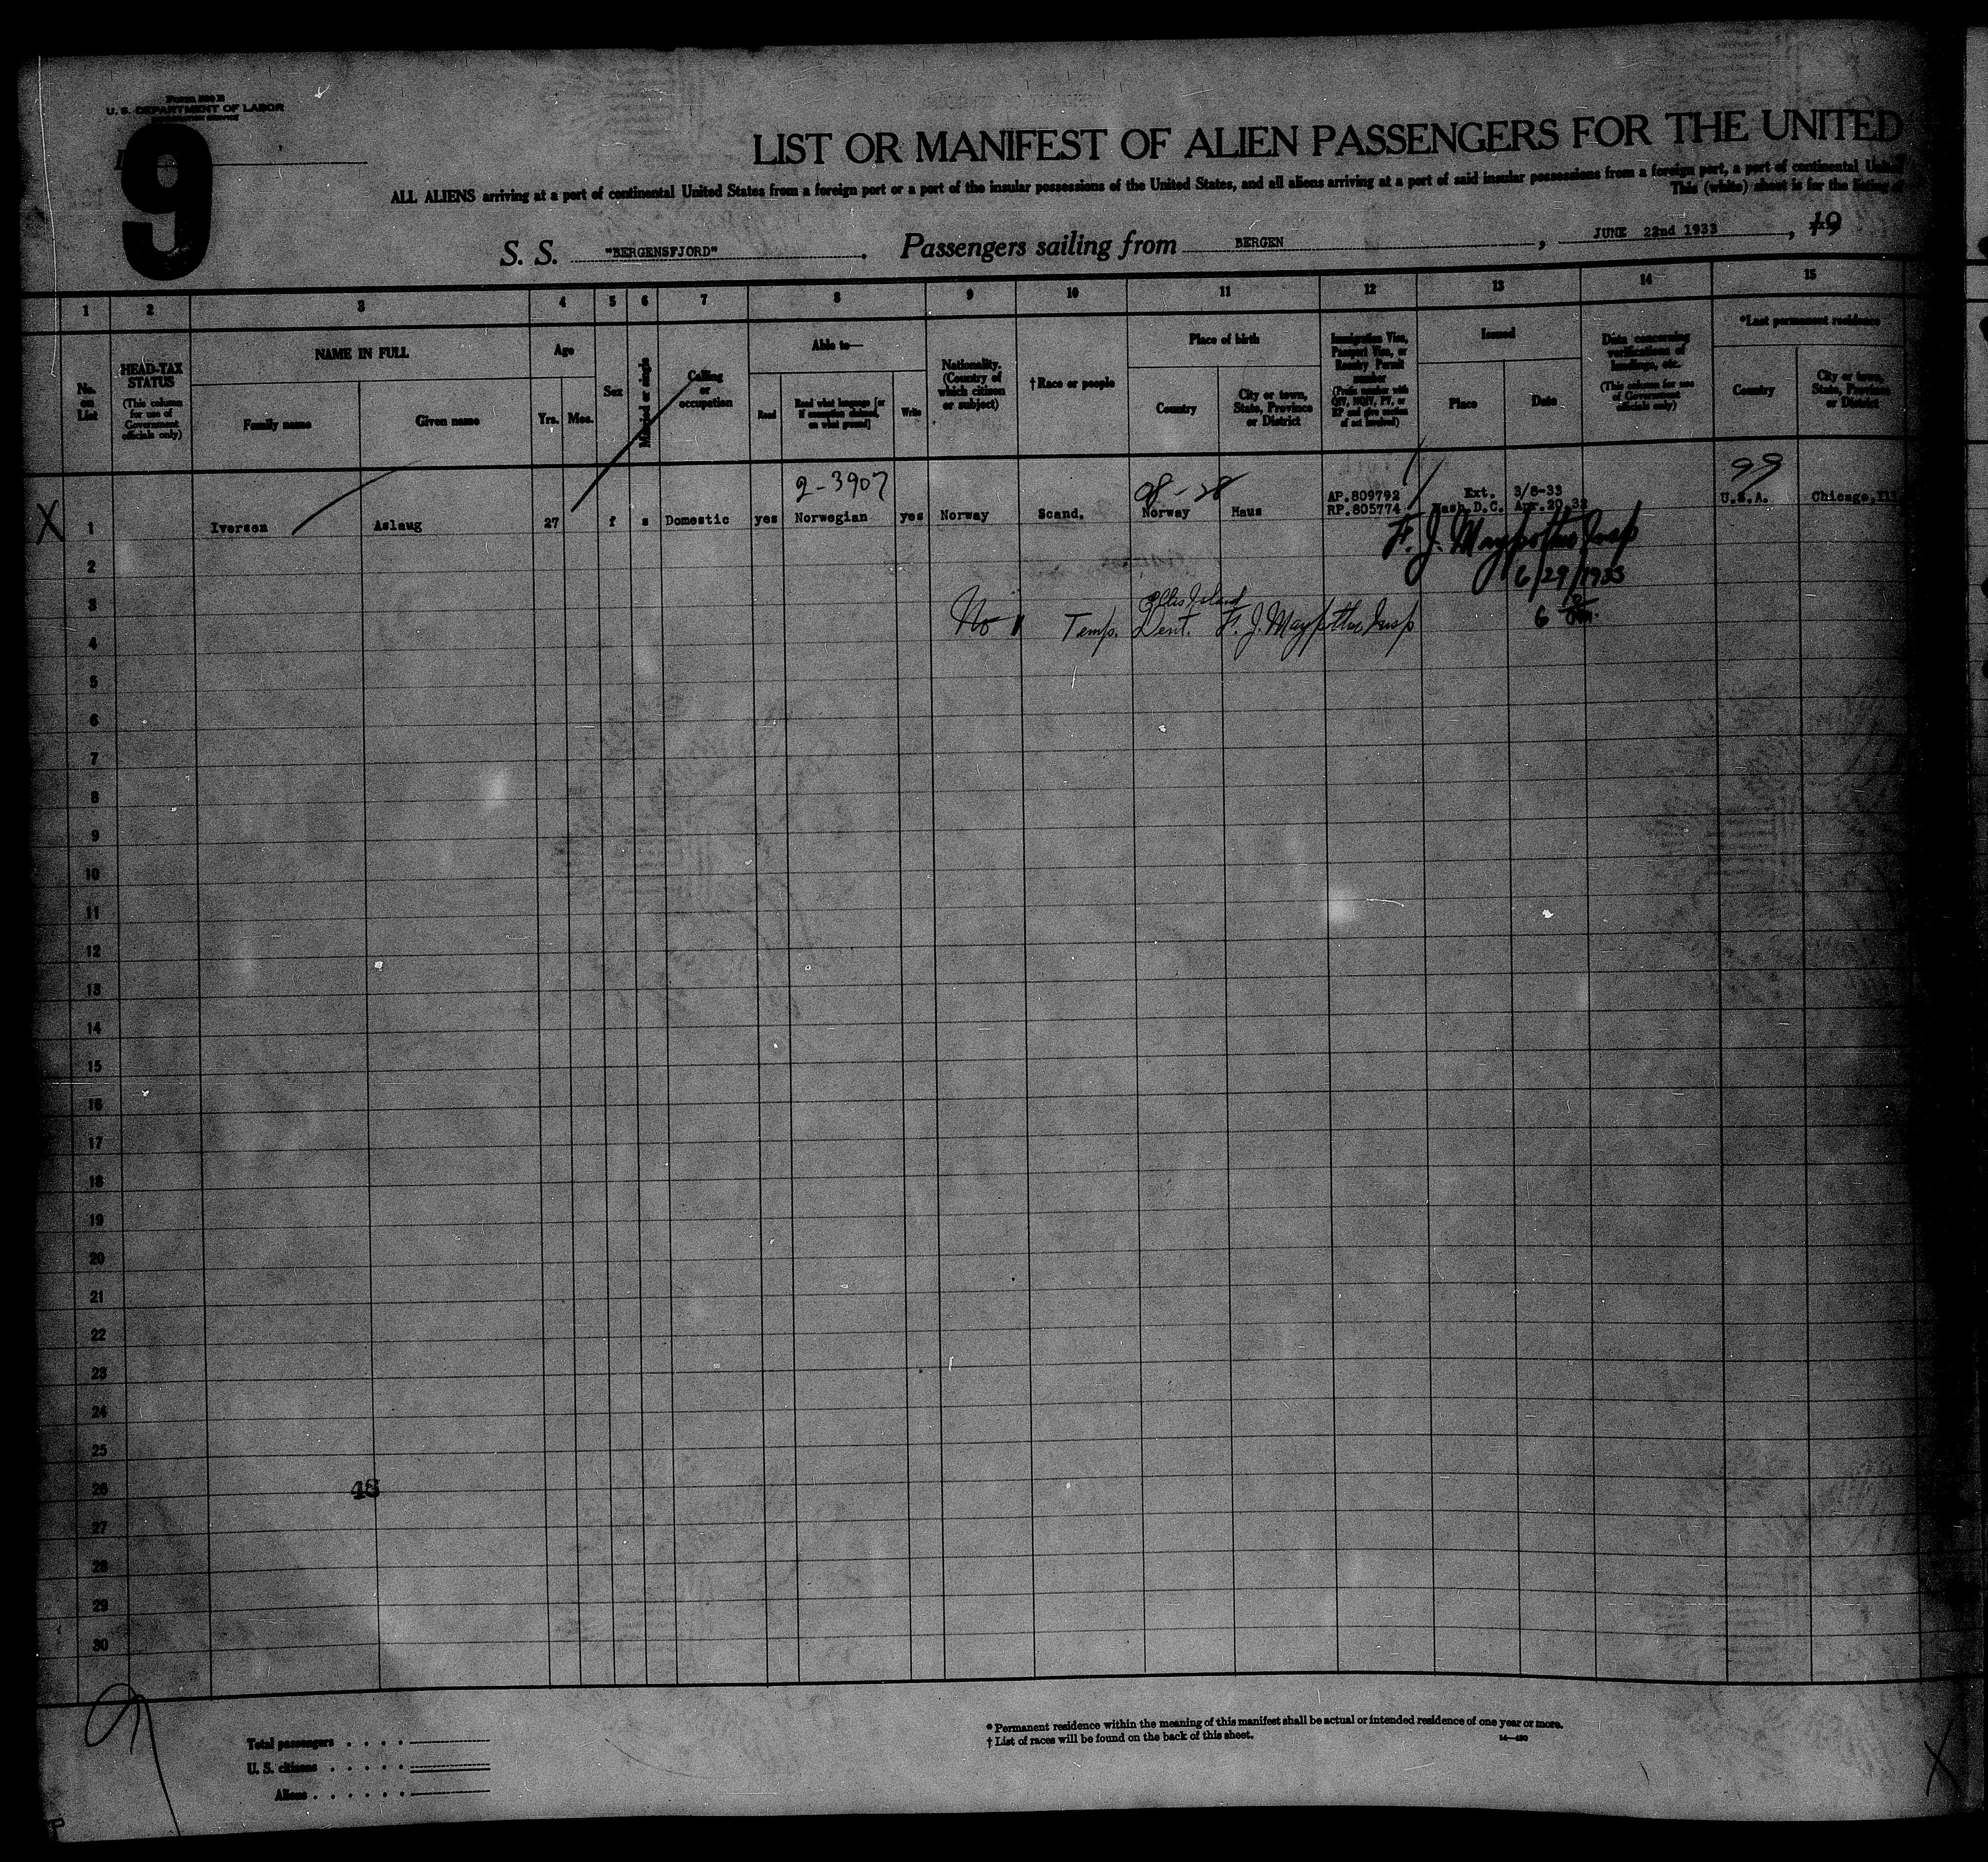 U. S. DEPARTMENT OF LABOR
9
LIST OR MANIFEST OF ALIEN PASSENGERS FOR THE UNITED
ALL ALIENS arriving at a port of continental United States from a foreign port or a port of the insular possessions of the United States, and all aliens arriving at a port of said insular possessions from a foreign port, a port of continental United
This (white) sheet is for the listing of
S. S. "BERGENSFJORD" . Passengers sailing from BERGEN , JUNE 22nd 1933 , 19
1 2 3 4 5 6 7 8 9 10 11 12 13 14 15
No. on List
HEAD-TAX STATUS (This column for use of Government officials only)
NAME IN FULL
Family name Given name
Age
Yrs. Mos.
Sex
Married or single
Calling or occupation
Able to—
Read Read what language [or if exemption claimed, on what ground] Write
Nationality. (Country of which citizen or subject)
†Race or people
Place of birth
Country City or town, State, Province or District
Immigration Visa, Passport Visa, or Reentry Permit number
(Prefix number with QIV, NQIV, PV, or RP and give section of act involved)
Issued
Place Date
Data concerning verifications of landings, etc.
(This column for use of Government officials only)
*Last permanent residence
Country City or town, State, Province or District
2-3907 99
AP.809792 Ext. 3/8-33
X 1 Iversen Aslaug 27 f s Domestic yes Norwegian yes Norway Scand. Norway Haus RP.805774 Wash.D.C. Apr.20.32 U.S.A. Chicago, Ill
2
6/29/1933
3
Ellis Island
No Temp. F. J. Insp
4
5
6
7
8
9
10
11
12
13
14
15
16
17
18
19
20
21
22
23
24
25
26
48
27
28
29
30
Total passengers . . . .
U. S. citizens . . . . .
Aliens . . . . . .
* Permanent residence within the meaning of this manifest shall be actual or intended residence of one year or more.
† List of races will be found on the back of this sheet.
X